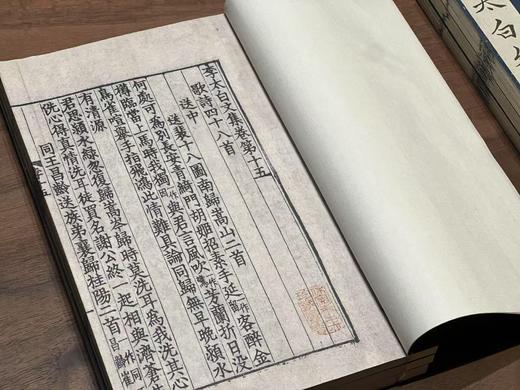 李太白文集卷第十五
歌詩四十八首
送中
送裴十八圖南歸嵩山二首
何處可為別長安青綺門胡姬招素手延一作留客醉金
罇臨當上馬時我獨與君言風吹一作驚芳蘭折日沒
鳥雀喧舉手指飛鴻此情難具論同歸無早晚潁水
有清源
君思潁水綠忽復歸嵩岑歸時莫洗耳為我洗其心
洗心得真情洗耳徒買名謝公終一起相與濟蒼生
同王昌齡送族弟襄歸桂陽二首一作同昌齡崔
太白